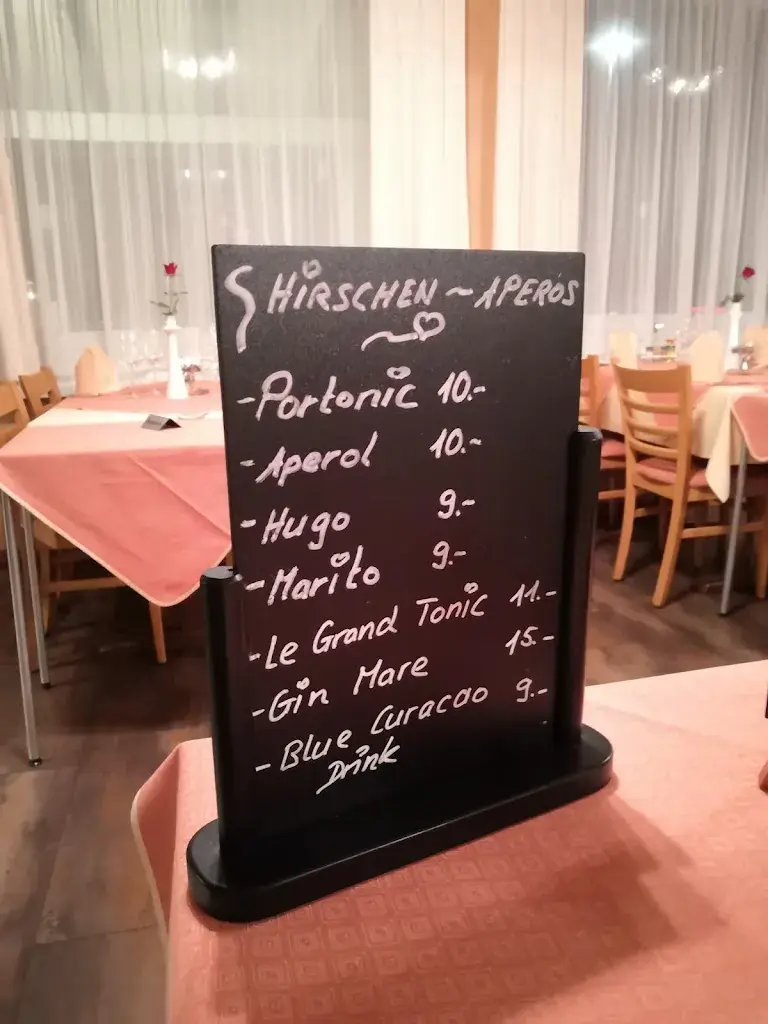 HIRSCHEN ~ APEROS
- Portonic 10.-
- Aperol 10.-
- Hugo 9.-
- Marito 9.-
- Le Grand Tonic 11.-
- Gin Mare 15.-
- Blue Curacao 9.-
Drink